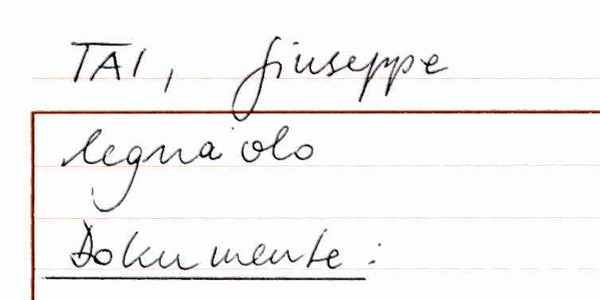 TAI, Giuseppe
legnaiolo
Dokumente: